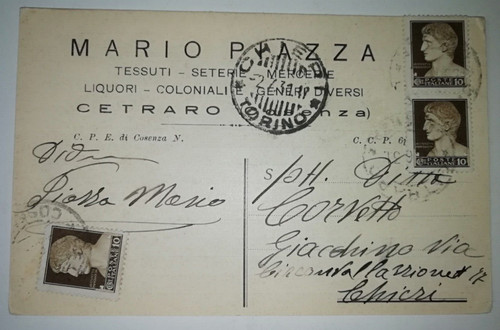 MARIO PIAZZA
TESSUTI - SETERIE - MERCERIE
LIQUORI - COLONIALI - GENERI DIVERSI
CETRARO (Cosenza)
C. P. E. di Cosenza N.
C. C. P. 6
CHIERI
TORINO
POSTE ITALIANE 10
POSTE ITALIANE 10
Ditta
Piazza Mario
S/PH. Ditta
Corvetto
Giacchino Via
Circonvallazione 17
Chieri
POSTE ITALIANE 10